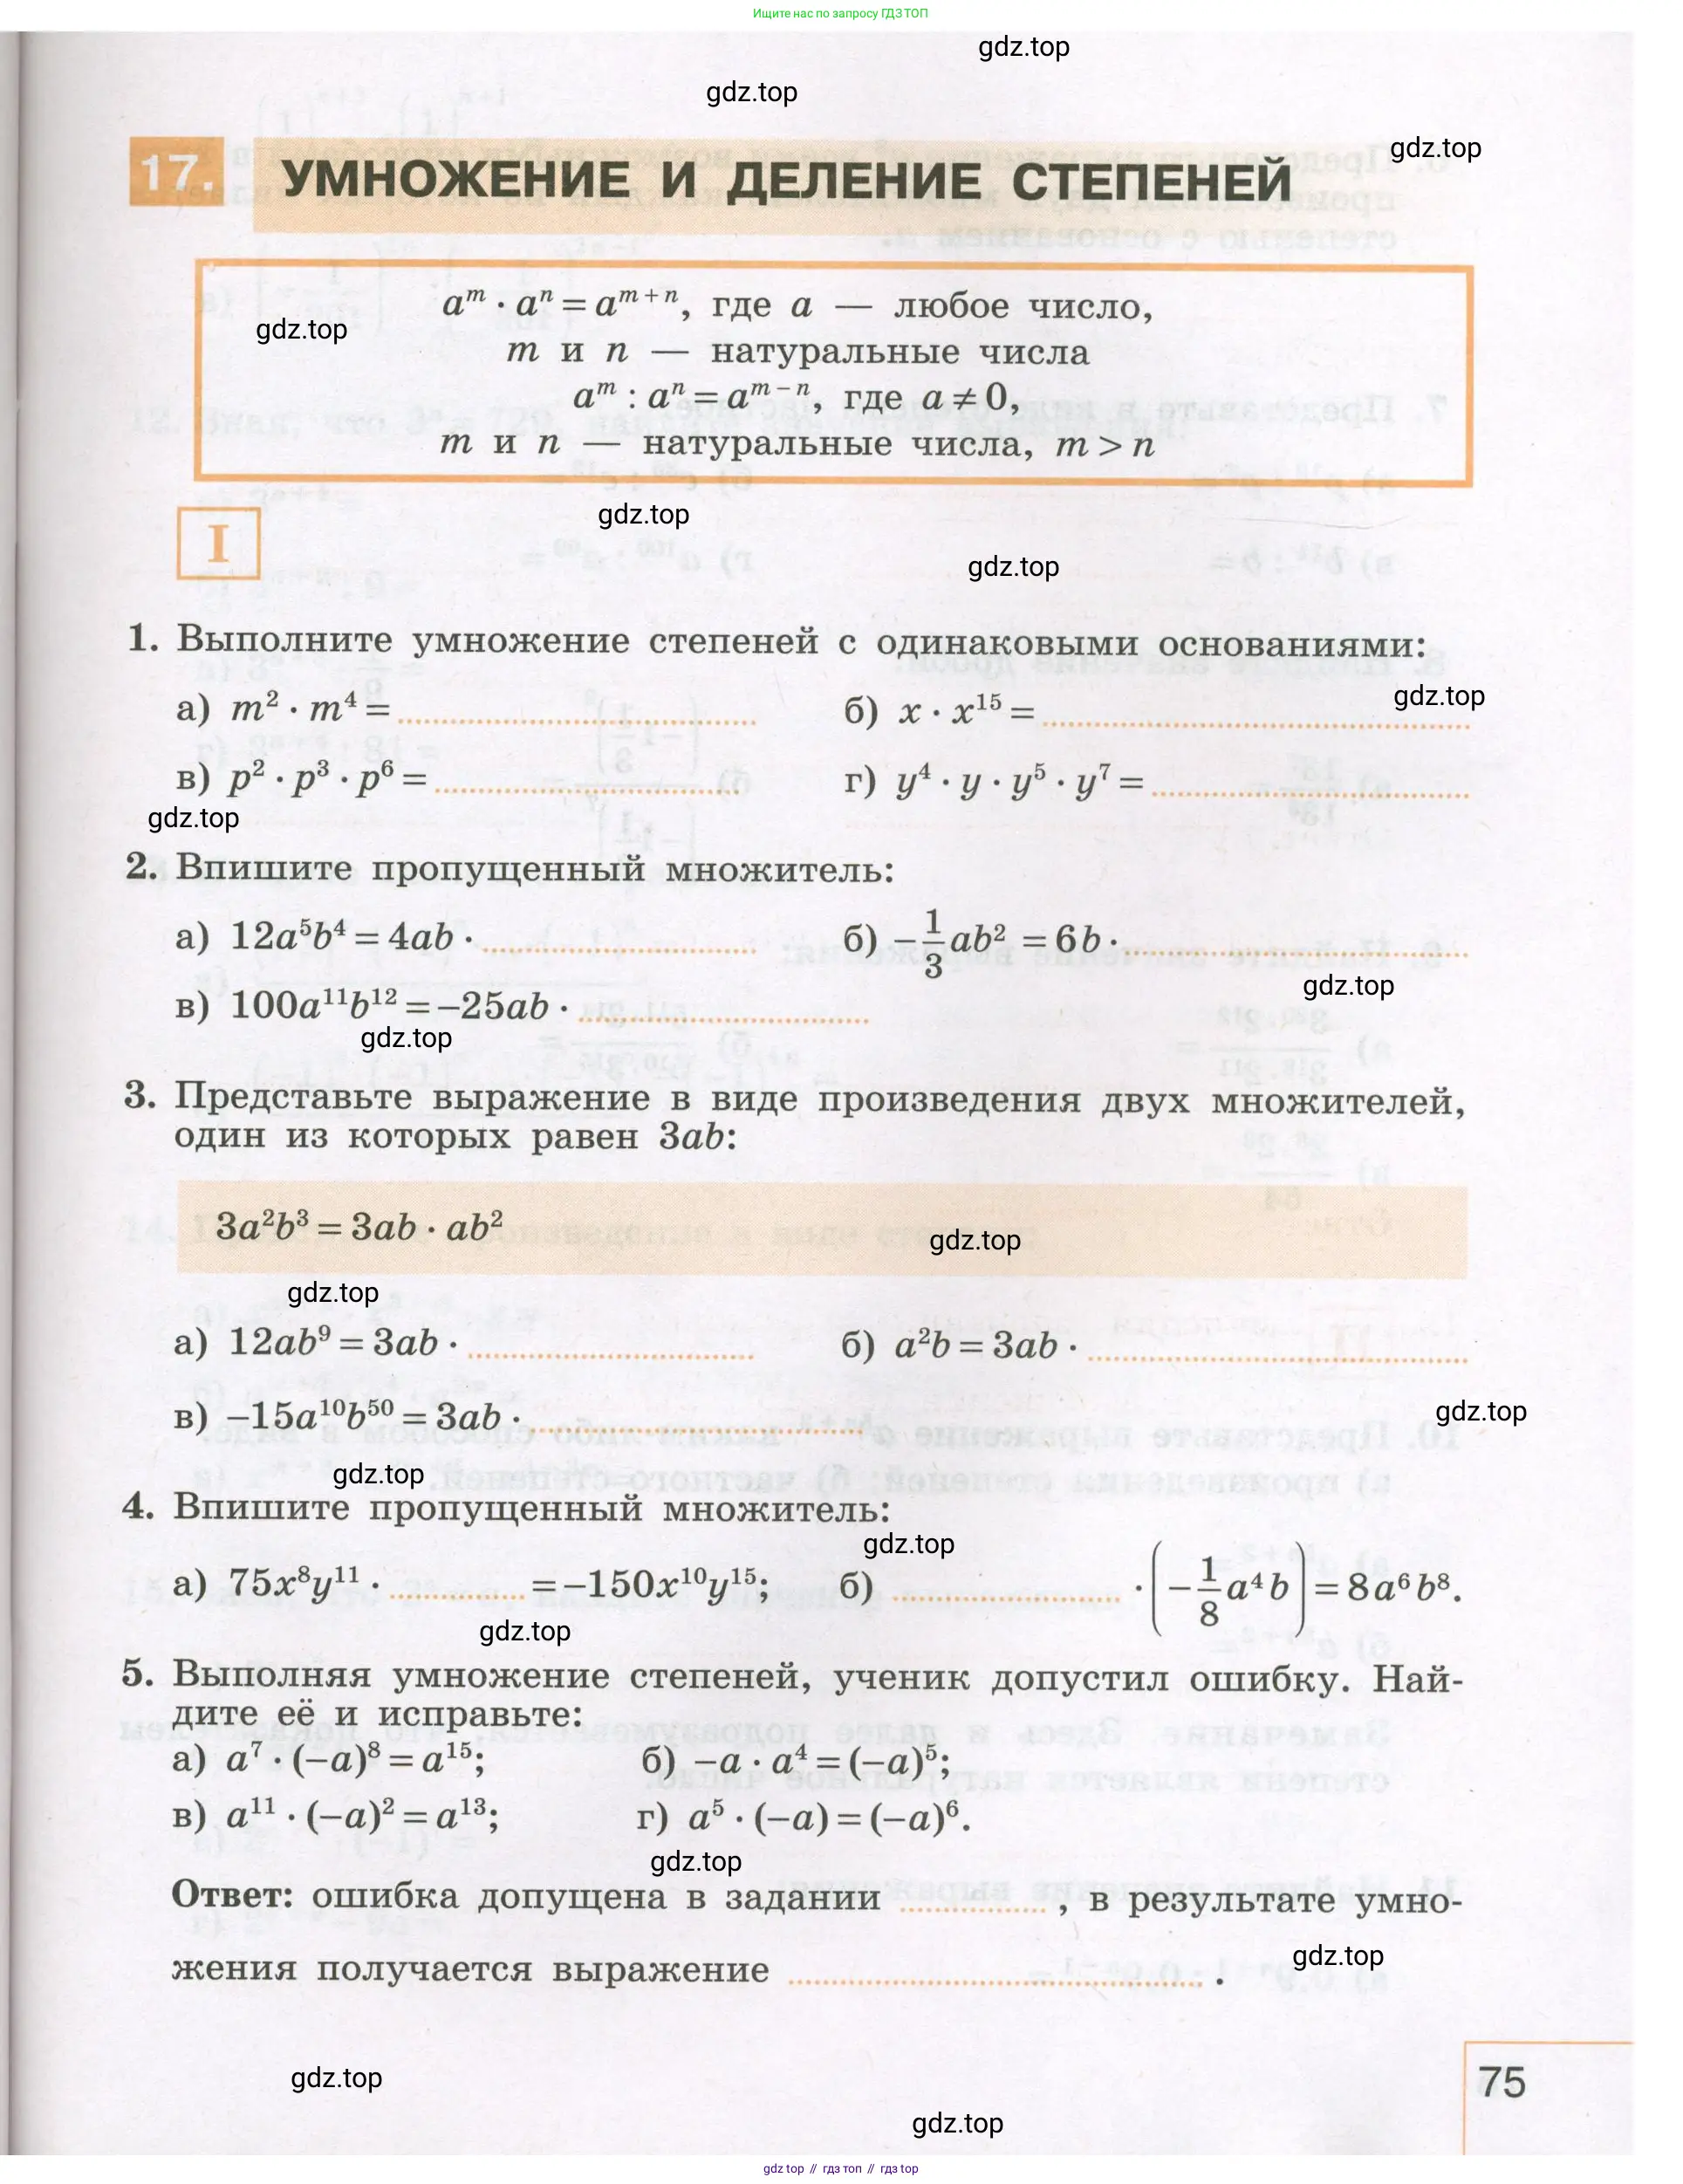 Ищите нас по запросу ГДЗ ТОП
gdz.top
gdz.top
gdz.top
17. УМНОЖЕНИЕ И ДЕЛЕНИЕ СТЕПЕНЕЙ
aᵐ · aⁿ = aᵐ⁺ⁿ, где a — любое число,
gdz.top
m и n — натуральные числа
aᵐ : aⁿ = aᵐ⁻ⁿ, где a ≠ 0,
m и n — натуральные числа, m > n
gdz.top
I
gdz.top
1. Выполните умножение степеней с одинаковыми основаниями:
gdz.top
а) m² · m⁴ = б) x · x¹⁵ =
в) p² · p³ · p⁶ = г) y⁴ · y · y⁵ · y⁷ =
gdz.top
2. Впишите пропущенный множитель:
а) 12a⁵b⁴ = 4ab · б) −1/3ab² = 6b ·
gdz.top
в) 100a¹¹b¹² = −25ab ·
gdz.top
3. Представьте выражение в виде произведения двух множителей,
один из которых равен 3ab:
3a²b³ = 3ab · ab²
gdz.top
gdz.top
а) 12ab⁹ = 3ab · б) a²b = 3ab ·
в) −15a¹⁰b⁵⁰ = 3ab ·
gdz.top
gdz.top
4. Впишите пропущенный множитель:
gdz.top
а) 75x⁸y¹¹ · = −150x¹⁰y¹⁵; б) · (−1/8a⁴b) = 8a⁶b⁸.
gdz.top
5. Выполняя умножение степеней, ученик допустил ошибку. Най-
дите её и исправьте:
а) a⁷ · (−a)⁸ = a¹⁵; б) −a · a⁴ = (−a)⁵;
в) a¹¹ · (−a)² = a¹³; г) a⁵ · (−a) = (−a)⁶.
gdz.top
Ответ: ошибка допущена в задании , в результате умно-
gdz.top
жения получается выражение .
75
gdz.top
gdz.top
gdz top // гдз топ // gdz top